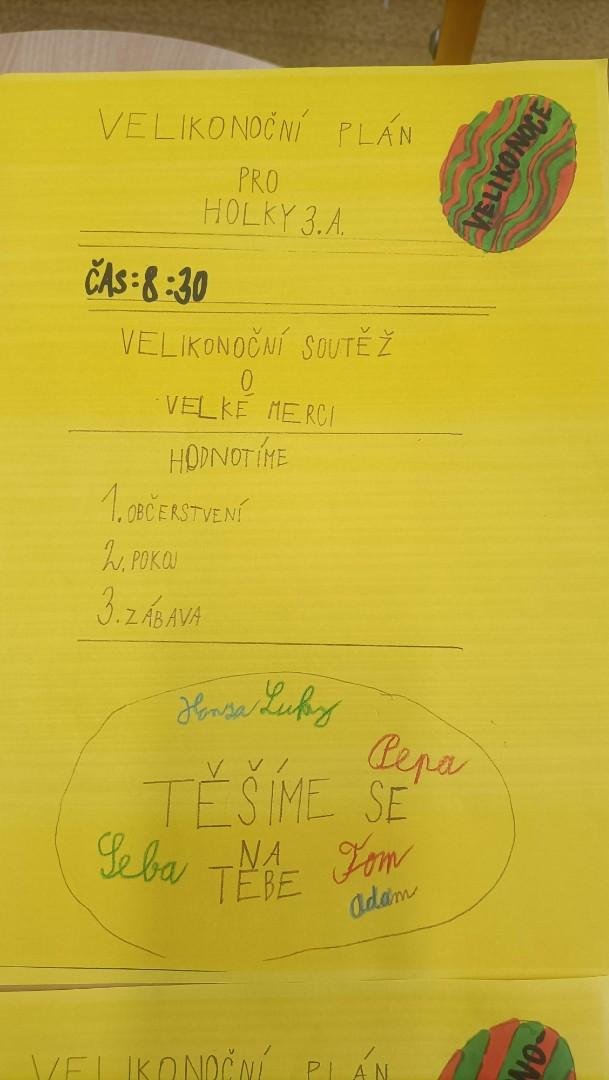 VELIKONOČNÍ PLÁN
PRO
HOLKY 3.A.
VELIKONOCE
ČAS:8:30
VELIKONOČNÍ SOUTĚŽ
O
VELKÉ MERCI
HODNOTÍME
1. OBČERSTVENÍ
2. POKOJ
3. ZÁBAVA
Honza Luky
Pepa
TĚŠÍME SE
Seba NA Tom
TEBE
Adam
VELIKONOČNÍ PLÁN
NO-